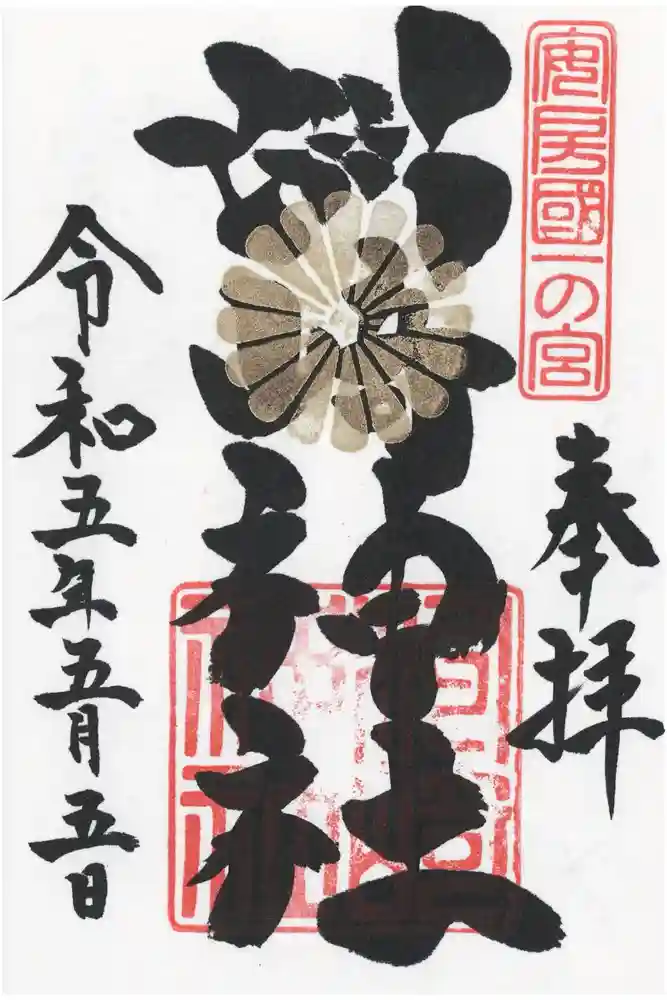 安房國一の宮
奉拝
神社
令和五年五月五日